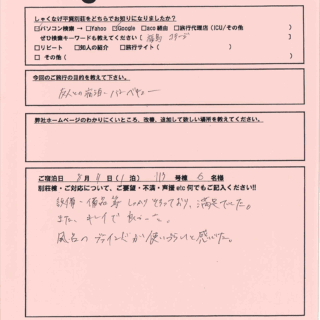 しゃくなげ平貸別荘をどちらでお知りになりましたか?
□パソコン検索 → □Yahoo □Google □eco経由 □旅行代理店 (ICU/その他 )
ぜひ検索キーワードも教えてください( 福島 コテージ )
□リピート □知人の紹介 □旅行サイト( )
□ その他( )
今回のご旅行の目的を教えて下さい。
友人との宿泊・バーベキュー
弊社ホームページのわかりにくいところ、改善、追加して欲しい場所を教えてください。
ご宿泊日 8月 日( 1 泊) 号棟 6 名様
別荘様・ご対応について、ご要望・不満・声援 etc 何でもご記入ください!!
設備・備品等 しっかりそろっており、満足でした。
また、キレイで良かった。
風呂のブラインドが使いづらいと感じた。